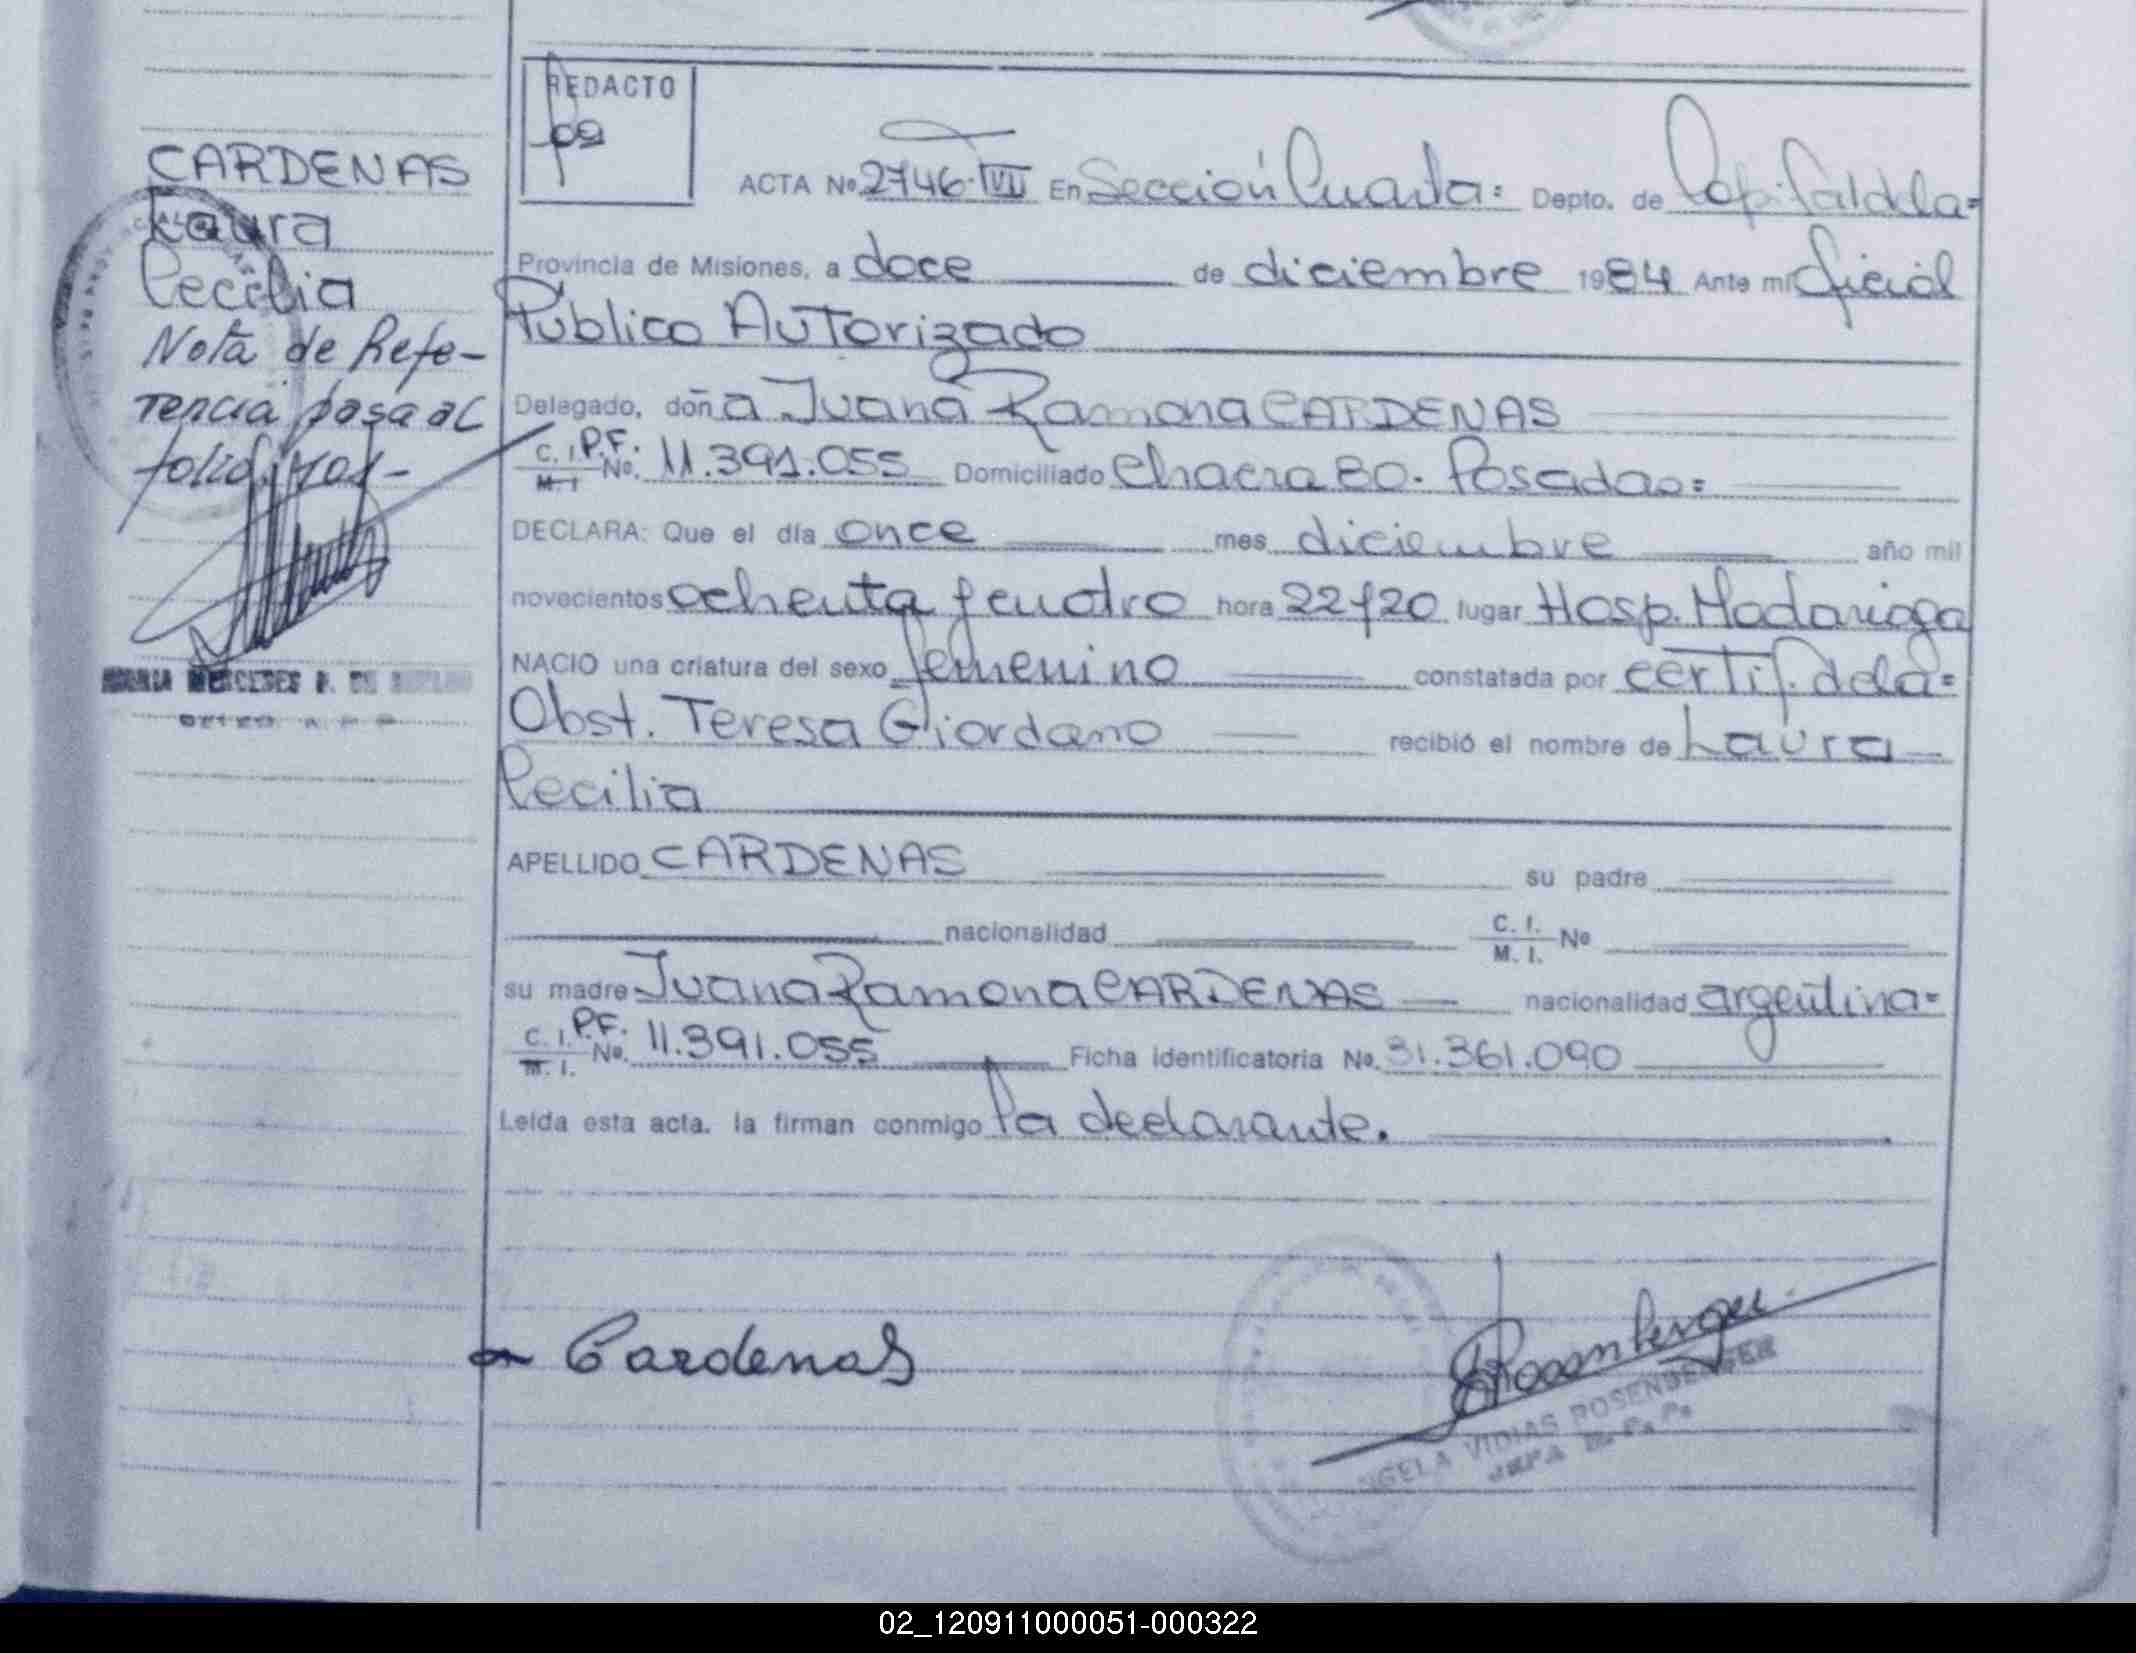 REDACTO
CARDENAS
Laura
Cecilia
Nota de Refe-
rencia pasa al
folio
ACTA No 2746-VII En Sección Cuarta= Depto. de Capital de la=
Provincia de Misiones, a doce de diciembre 1984 Ante mi Oficial
Público Autorizado
Delegado, doña Juana Ramona CARDENAS
C. I. P.F. M. I No. 11.391.055 Domiciliado Chacra 80. Posadas=
DECLARA: Que el día once mes diciembre año mil
novecientos ochenta y cuatro hora 22y20 lugar Hosp. Madariaga
NACIO una criatura del sexo femenino constatada por certif. de la=
Obst. Teresa Giordano recibió el nombre de Laura
Cecilia
APELLIDO CARDENAS su padre
nacionalidad C. I. M. I. No
su madre Juana Ramona CARDENAS nacionalidad argentina=
C. I. P.F. M. I. No. 11.391.055 Ficha identificatoria No. 31.361.090
Leída esta acta. la firman conmigo la declarante.
Cardenas
Rosenberger
ANGELA VIDIAS ROSENBERGER
JEFA
02_120911000051-000322